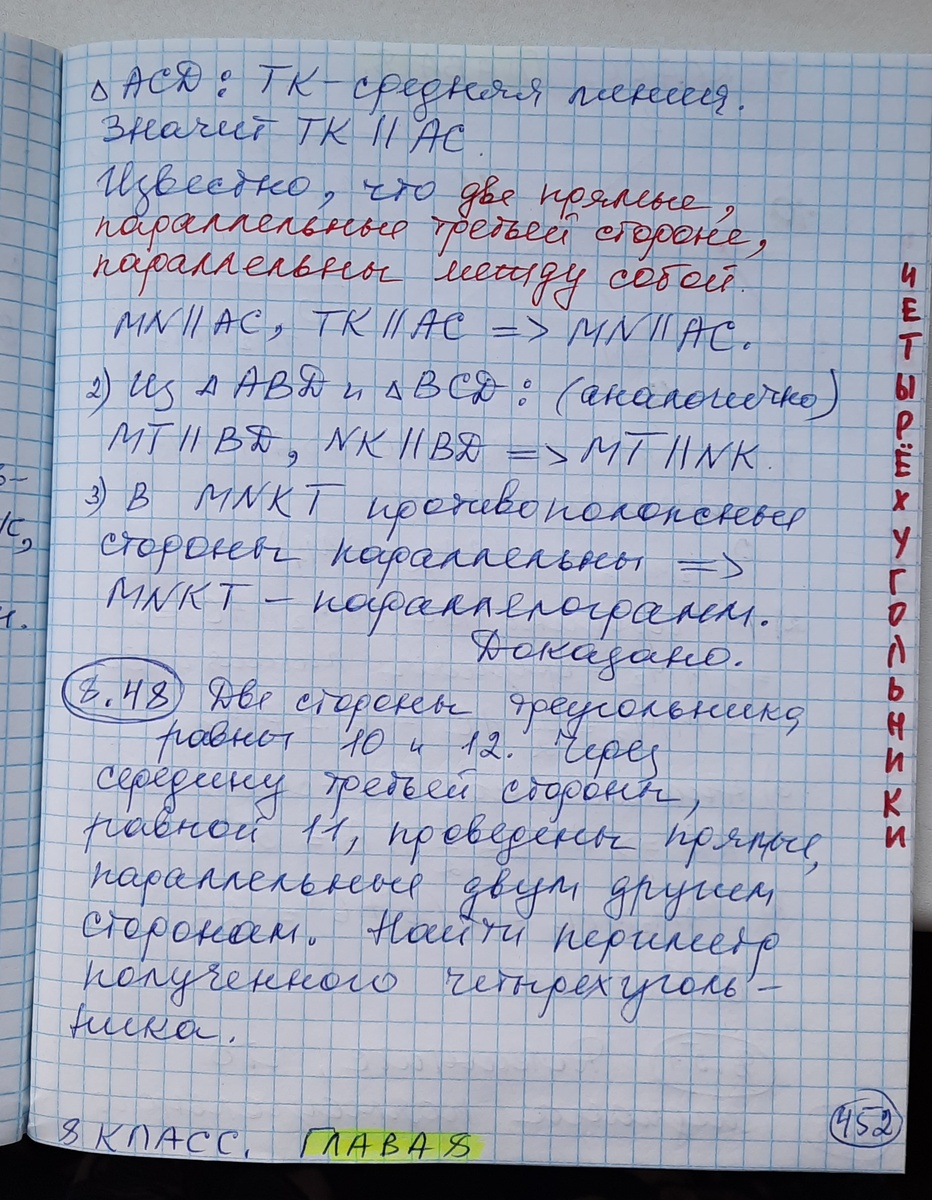 △ ACD: TK – средняя линия.
Значит TK || AC.
Известно, что две прямые,
параллельные третьей стороне,
параллельны между собой.
MN || AC, TK || AC => MN || AC.
2) Из △ ABD и △ BCD: (аналогично)
MT || BD, NK || BD => MT || NK.
3) В MNKT противоположные
стороны параллельны =>
MNKT – параллелограмм.
Доказано.
8.48 Две стороны треугольника
равны 10 и 12. Через
середину третьей стороны,
равной 11, проведены прямые,
параллельные двум другим
сторонам. Найти периметр
полученного четырехуголь-
ника.
8 КЛАСС. ГЛАВА 8
452
ЧЕТЫРЁХУГОЛЬНИКИ